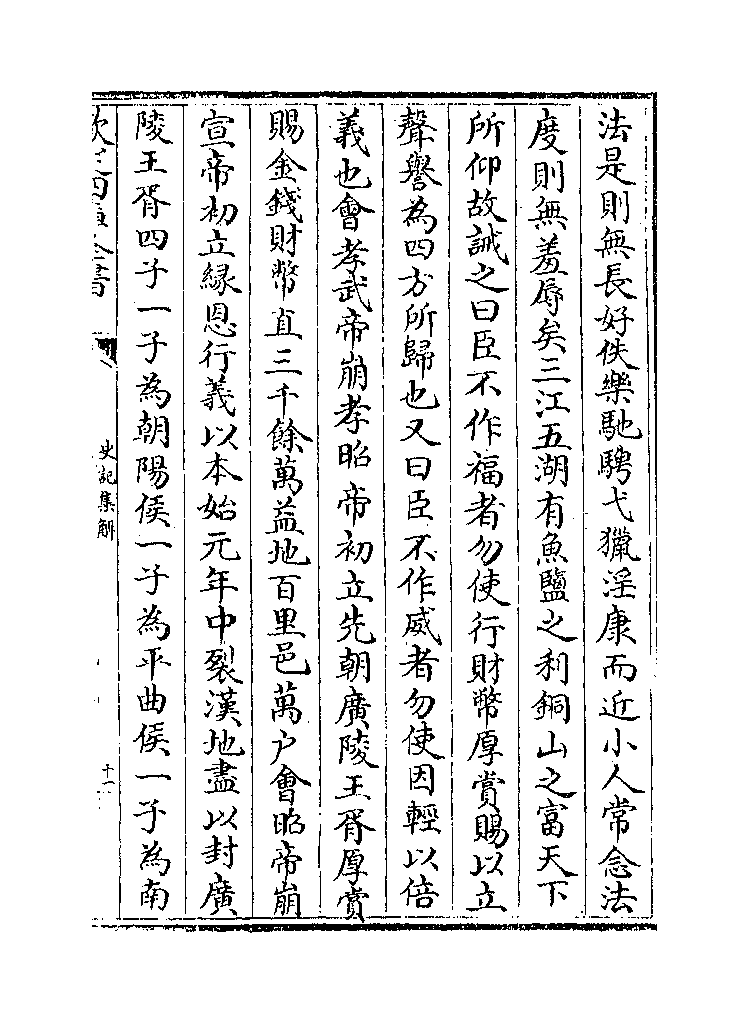 法是則無長好佚樂馳騁弋獵淫康而近小人常念法
度則無羞辱矣三江五湖有魚鹽之利銅山之富天下
所仰故誡之曰臣不作福者勿使行財幣厚賞賜以立
聲譽為四方所歸也又曰臣不作威者勿使因輕以倍
義也會孝武帝崩孝昭帝初立先朝廣陵王胥厚賞
賜金錢財幣直三千餘萬益地百里邑萬户會昭帝崩
宣帝初立緣恩行義以本始元年中裂漢地盡以封廣
陵王胥四子一子為朝陽侯一子為平曲侯一子為南
欽定四庫全書
史記集解
十一